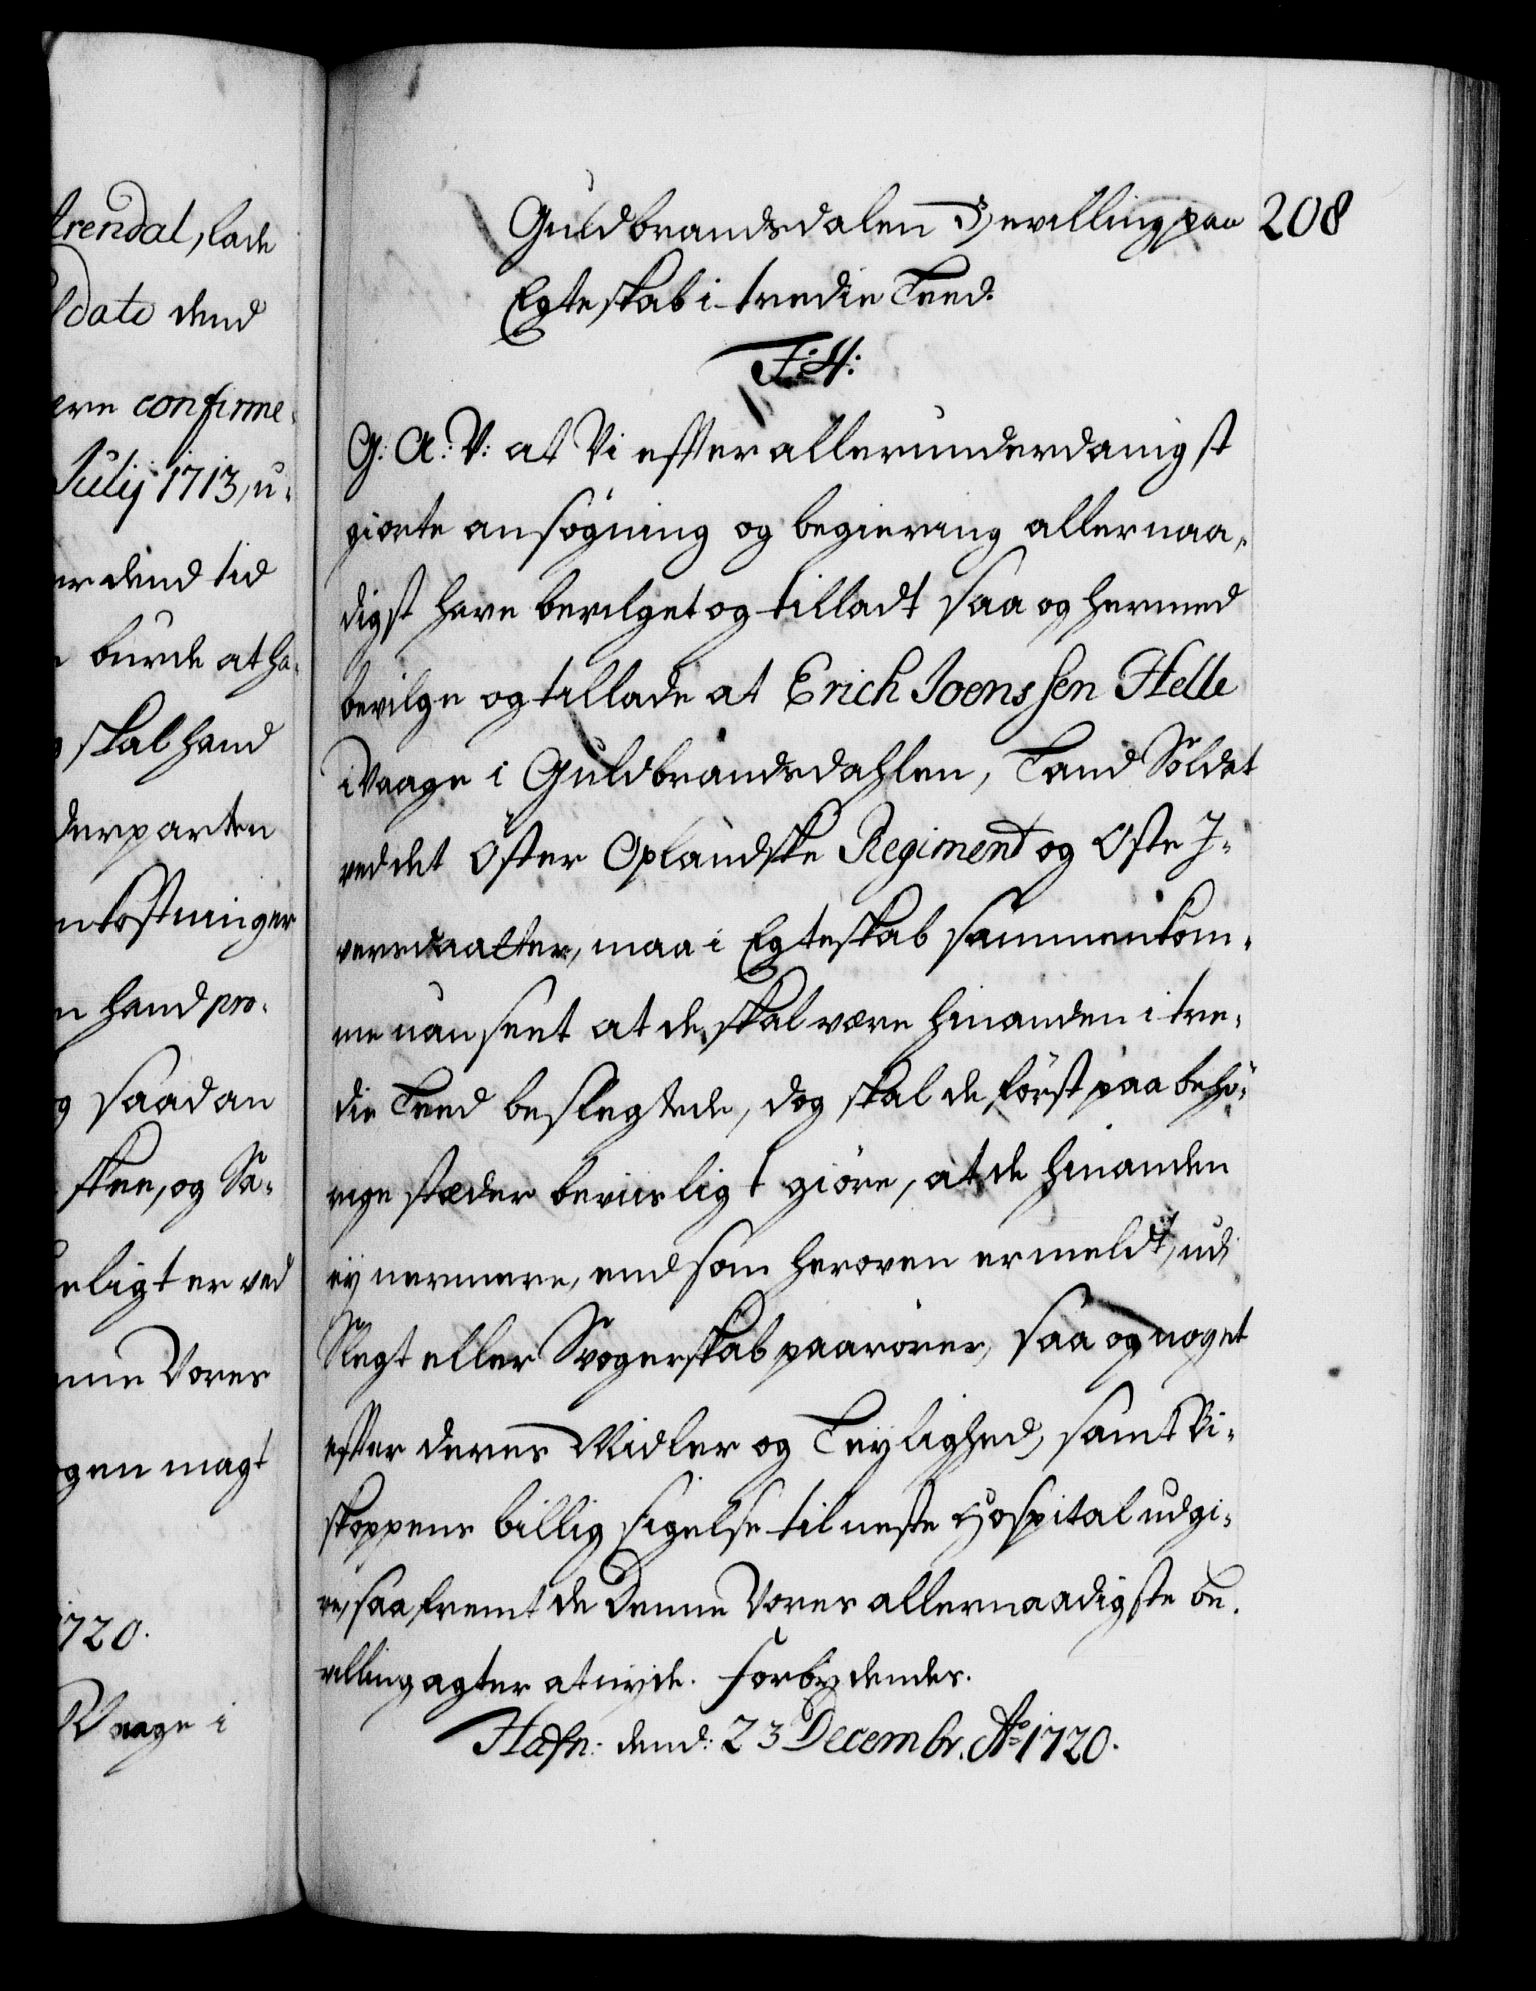 Arendal, lade
dato dend
ere confirme-
Julij 1713, u-
er dend tid
burde at ha-
skal hand
derparten
nkostninger
n hand pro-
saadan
skee, og Sa-
eligt er ved
nne Vores
ogen magt
1720.
Vaage i
208
Guldbrandsdalen Bevilling paa
Egteskab i tredie Leed.
F: 4:
G: A: V: at Vi efter allerunderdanigst
giorte ansögning og begiering allernaa-
digst have bevilget og tilladt saa og hermed
bevilge og tillade at Erich Joenssen Helle
i Vaage i Guldbrandsdahlen, Land Soldat
ved det Öster Oplandske Regiment og Oste J-
versdaatter, maa i Egteskab sammenkom-
me uanseet at de skal være hinanden i tre-
die Leed beslegtede, dog skal de först paa behö-
rige stæder beviisligt giöre, at de hinanden
ej nermere, end som heroven er meldt, udi
Slegt eller Svogerskab paarörer, saa og noget
efter deres Midler og Leylighed, samt Bi-
skoppens billig sigelse til neste Hospital udgi-
ve, saafremt de Denne Vores allernaadigste be-
villing agter at nyde. Forbydendes.
Hafn: dend: 23 Decembr. Ao 1720.